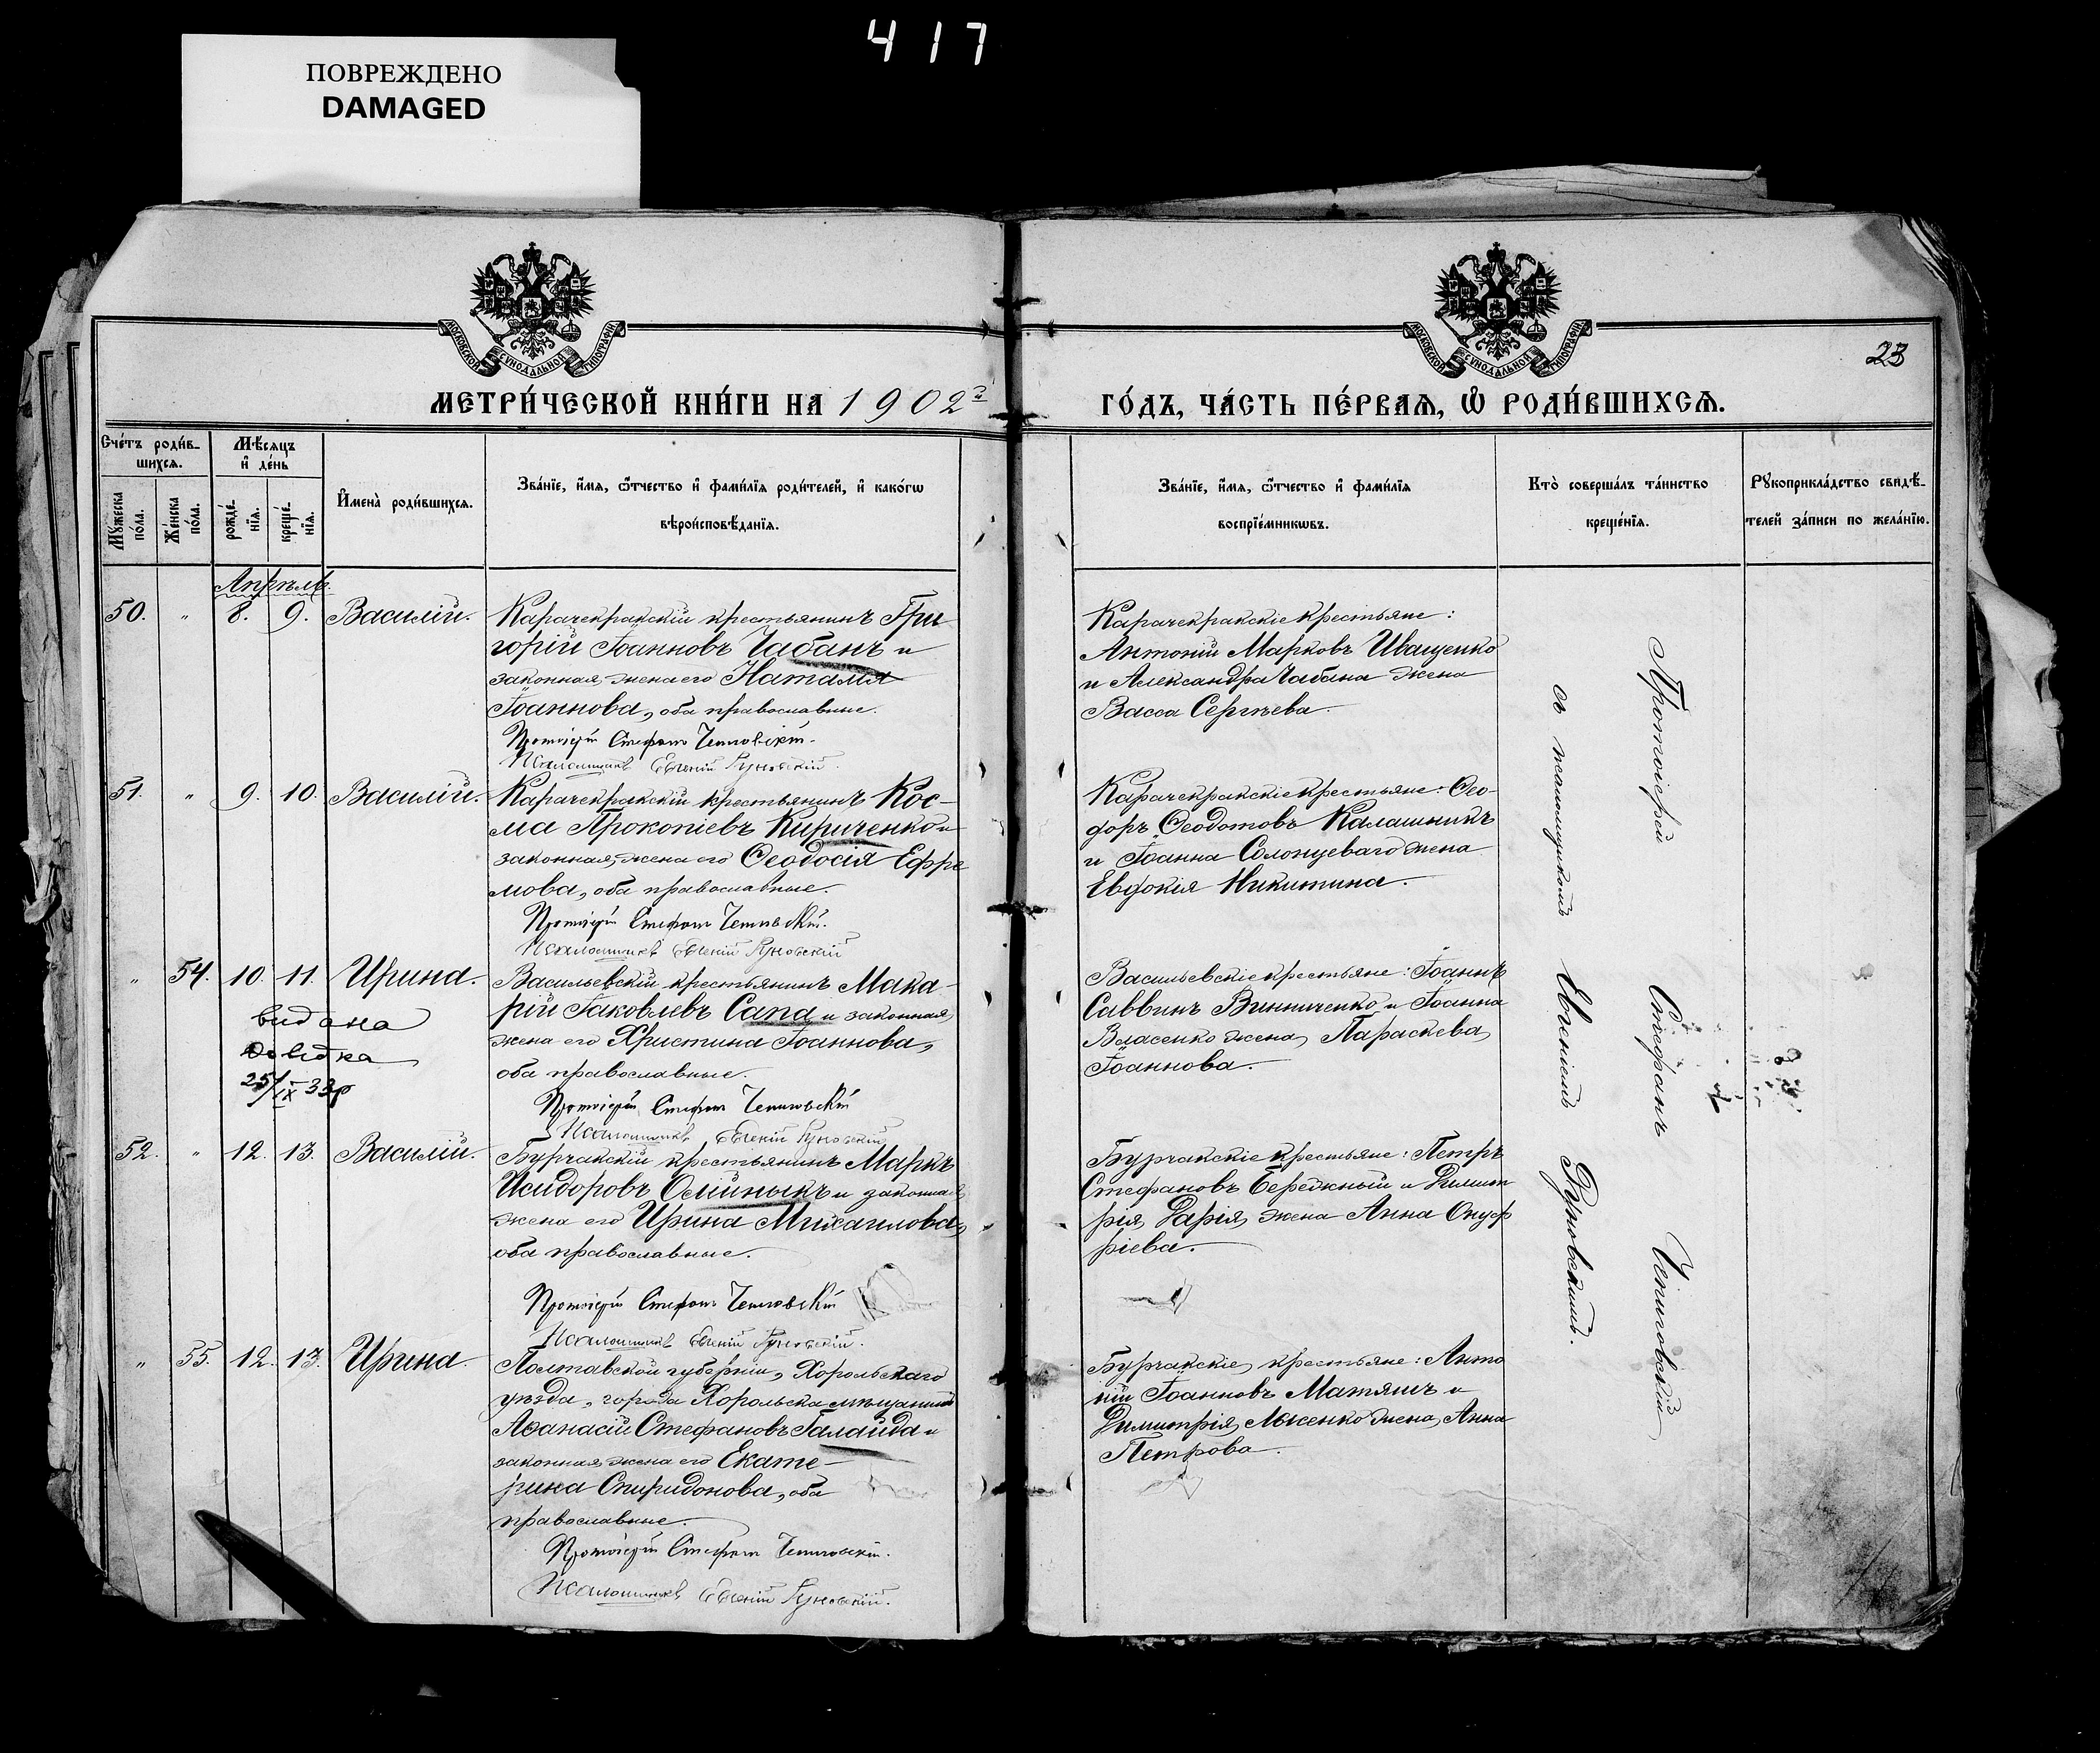 417
ПОВРЕЖДЕНО
DAMAGED
МОСКОВСКОЙ СѴНОДАЛЬНОЙ ТИПОГРАФІИ
МОСКОВСКОЙ СѴНОДАЛЬНОЙ ТИПОГРАФІИ
23
МЕТРИ́ЧЕСКОЙ КНИ́ГИ НА 1902й
ГО́ДЪ, ЧА́СТЬ ПЕ́РВАѦ, Ѽ РОДИ́ВШИХСѦ.
Сче́тъ роди́в-
шихсѧ.
Мѣ́сѧцъ
и҆ де́нь
Мꙋ́жеска
по́ла.
Же́нска
по́ла.
рожде́-
нїѧ.
креще́-
нїѧ.
И҆мена̀ роди́вшихсѧ.
Зва́нїе, и҆́мѧ, ѻ҆́тчество и҆ фами́лїѧ роди́телей, и҆ како́гѡ
вѣроисповѣ́данїѧ.
Зва́нїе, и҆́мѧ, ѻ҆́тчество и҆ фами́лїѧ
воспрїе́мникѡвъ.
Кто̀ соверша́лъ та́инство
креще́нїѧ.
Рꙋкоприкла́дство свидѣ́-
телей за́писи по жела́нїю.
Апрѣль
50. " 8. 9. Василій.
Карачекракскій крестьянинъ Гри-
горій Іоанновъ Чабанъ и
законная жена его Наталія
Іоаннова, оба православные.
Протоіерей Стефанъ
Псаломщикъ Евгеній Руновскій.
Карачекракскіе крестьяне:
Антоній Марковъ Иващенко
и Александра Чабана жена
Васса Сергѣева.
51. " 9. 10. Василій.
Карачекракскій крестьянинъ Кос-
ма Прокопіевъ Кириченко и
законная жена его Ѳеодосія Ефре
мова, оба православные.
Протоіерей Стефанъ
Псаломщикъ Евгеній Руновскій
Карачекракскіе крестьяне: Ѳео-
доръ Ѳеодотовъ Калашникъ
и Іоанна Солонцеваго жена
Евдокія Никитина.
" 54. 10. 11. Ирина.
видана
довідка
25/IX 33р
Васильевскій крестьянинъ Мака-
рій Іаковлевъ Сапа и законная
жена его Христина Іоаннова,
оба православные.
Протоіерей Стефанъ
Псаломщикъ Евгеній Руновскій
Васильевскіе крестьяне: Іоаннъ
Саввинъ Винниченко и Іоанна
Власенко жена Параскева
Іоаннова.
52. " 12. 13. Василій.
Бурчакскій крестьянинъ Маркъ
Исидоровъ Олійныкъ и законная
жена его Ирина Михаилова,
оба православные.
Протоіерей Стефанъ
Псаломщикъ Евгеній Руновскій.
Бурчакскіе крестьяне: Петръ
Стефановъ Бережный и Димит
рія жена Анна Онуф
ріева.
" 55. 12. 13. Ирина.
Полтавской губерніи, Хорольскаго
уѣзда, города Хорольска мѣщанинъ
Аѳанасій Стефановъ Галайда и
законная жена его Екате-
рина Спиридонова, оба
православные.
Протоіерей Стефанъ
Псаломщикъ Евгеній Руновскій.
Бурчакскіе крестьяне: Анто
ній Іоанновъ Матяшъ и
Димитрія жена Анна
Петрова.
Протоіерей Стефанъ
съ псаломщикомъ Евгеніемъ Руновскимъ.